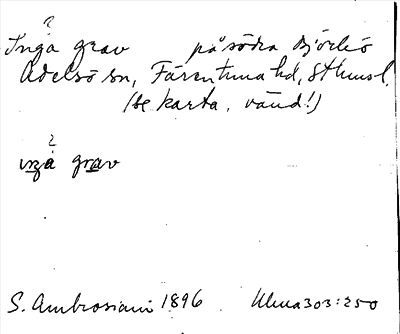 ?
Ingå grav på södra Björkö
Adelsö sn, Färentuna hd, Sthmsl.
(se karta, vänd!)
?
ıŋå grav
S. Ambrosiani 1896 Ulma 303:250